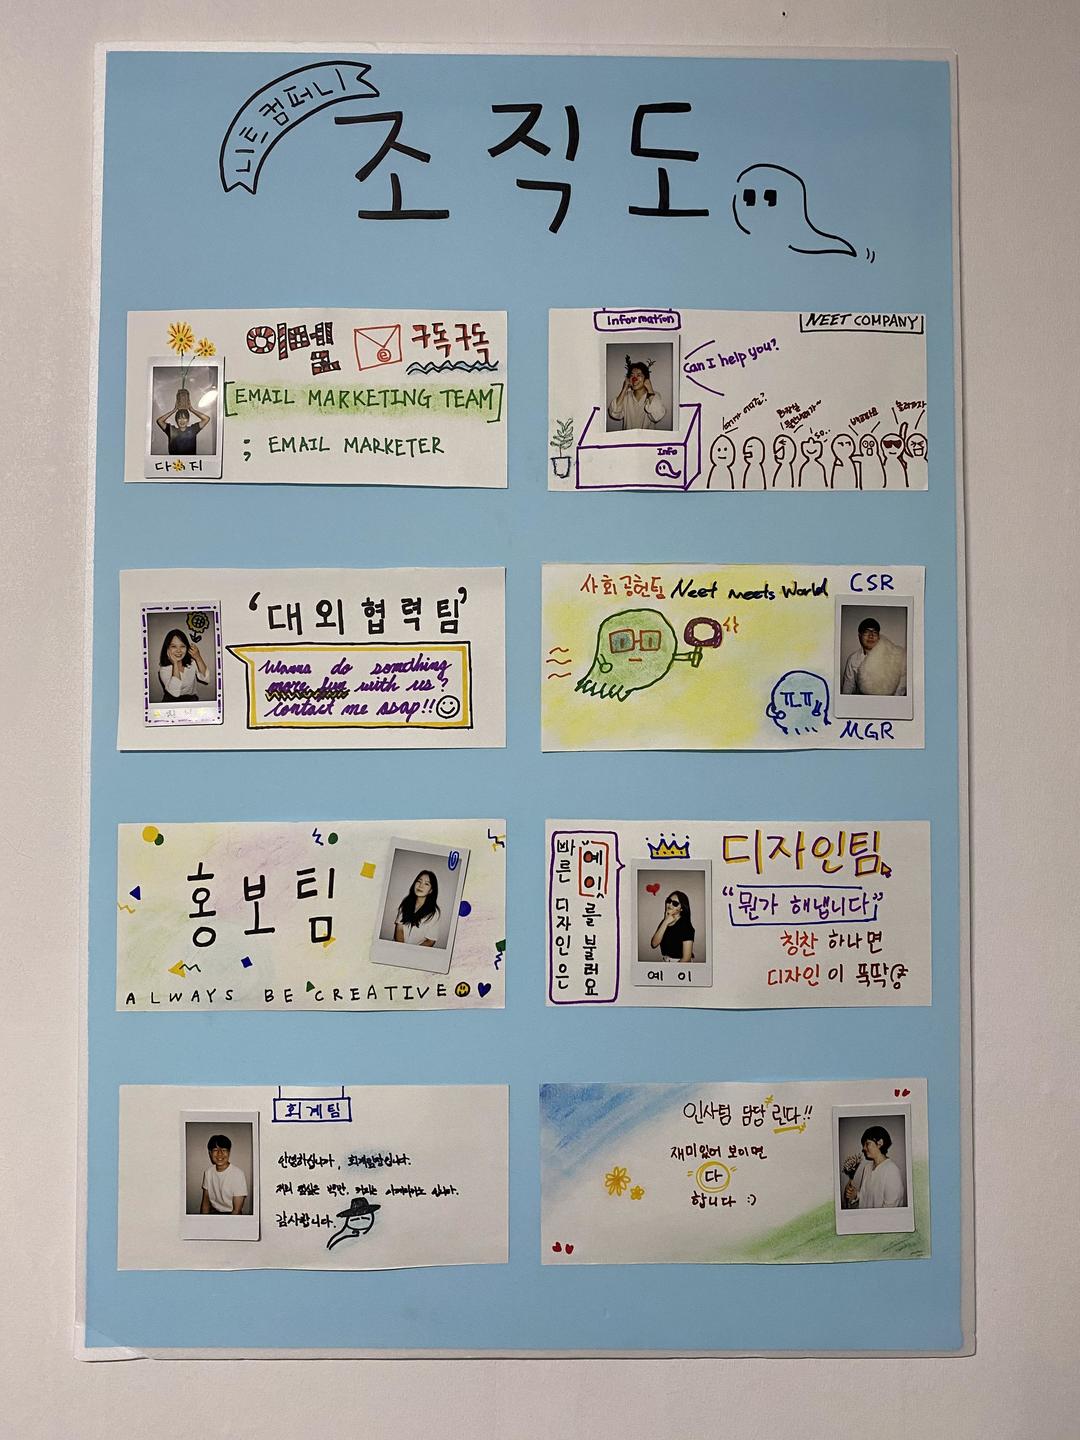 니트컴퍼니
조직도
이멜 구독구독
[EMAIL MARKETING TEAM]
; EMAIL MARKETER
다 지
Information
NEET COMPANY
Can I help you?
so..
Info
'대외협력팀'
Wanna do something
more fun with us?
Contact me asap!!
사회공헌팀 Neet meets World
CSR
ㅠㅠ
MGR
홍보팀
ALWAYS BE CREATIVE
빠른 디자인은
예이를 불러요
예이
디자인팀
"뭔가 해냅니다"
칭찬 하나면
디자인이 뚝딱
회계팀
안녕하십니까, 회계팀장입니다.
감사합니다.
인사팀 담당 린다!!
재미있어 보이면
"다"
합니다 :)